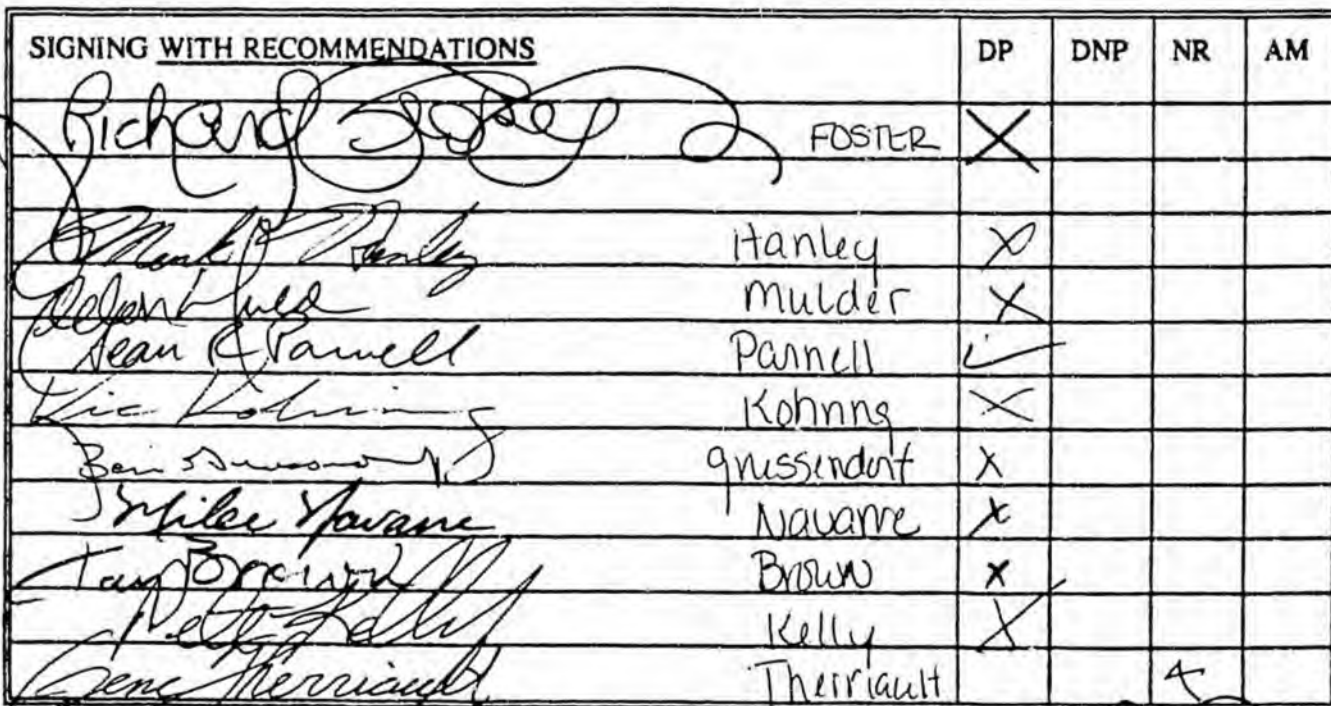 SIGNING WITH RECOMMENDATIONS DP DNP NR AM
Richard Foster FOSTER X
Mark Hanley Hanley X
Mulder X
Sean R Parnell Parnell ✓
Vic Kohring Kohring X
Ben Grussendorf X
Mike Navarre Navarre X
Brown Brown X
Pete Kelly Kelly X
Gene Therriault Therriault X